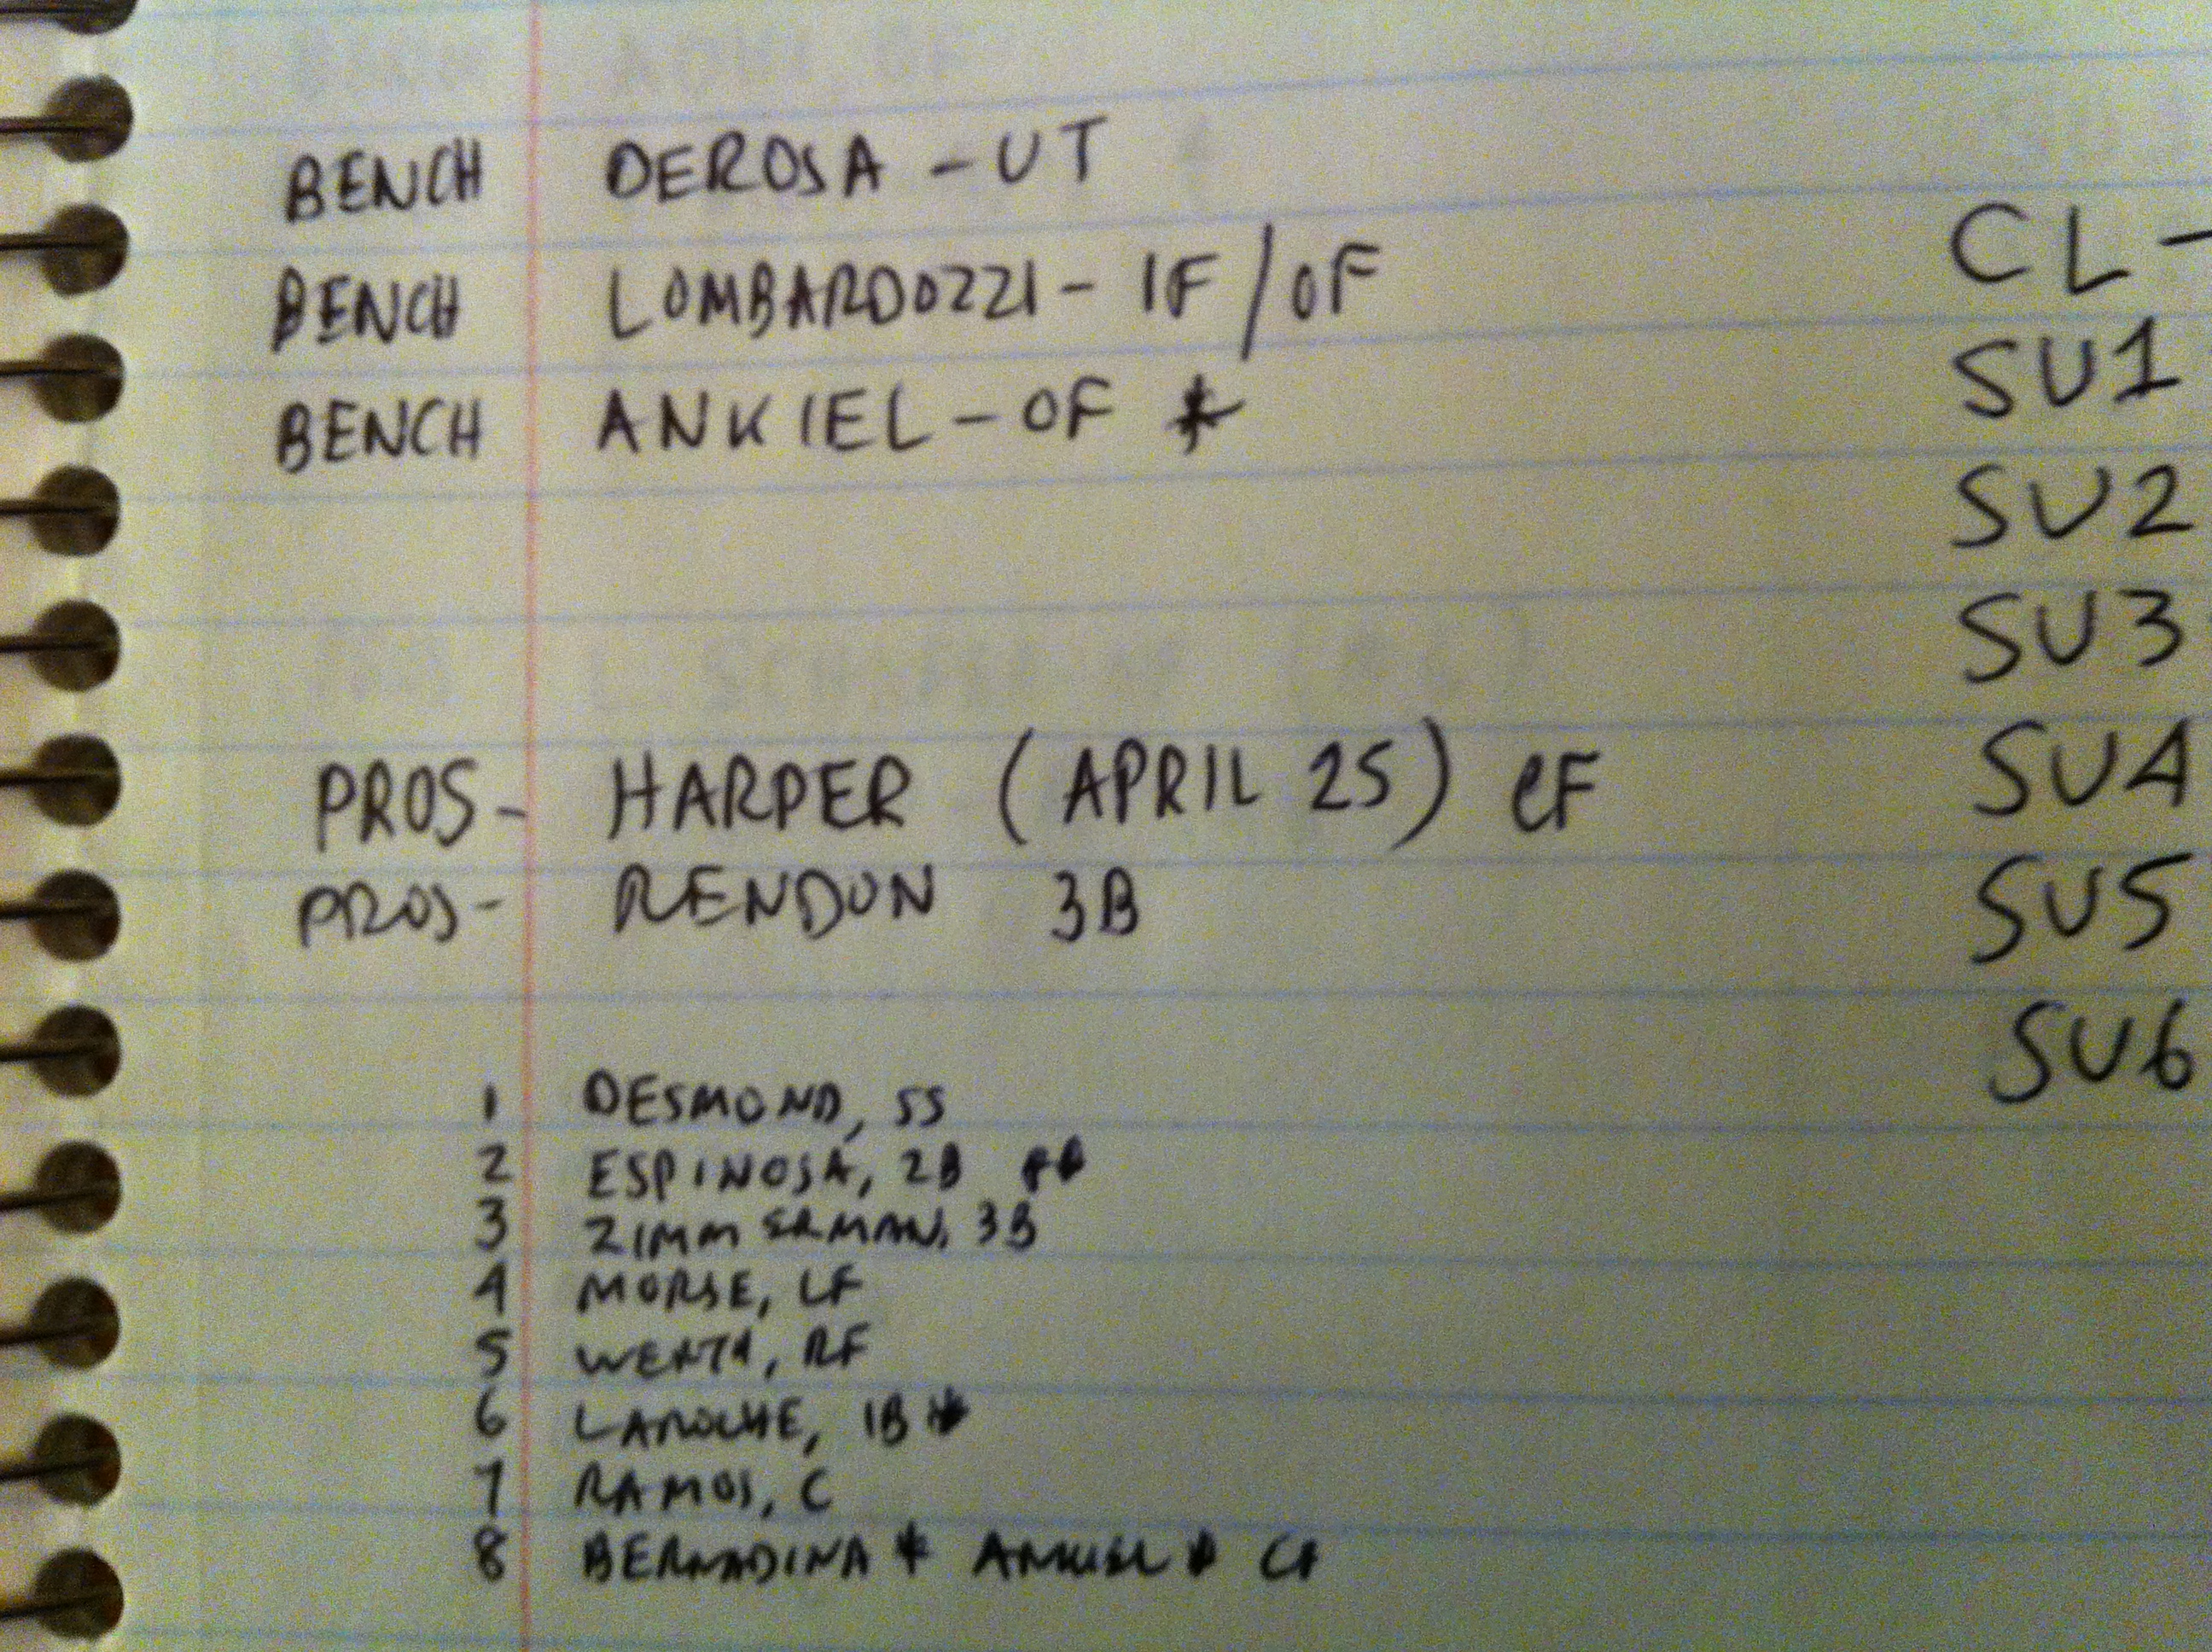 BENCH DEROSA - UT
BENCH LOMBARDOZZI - IF/OF
BENCH ANKIEL - OF *
PROS- HARPER (APRIL 25) CF
PROS- RENDON 3B
1 DESMOND, SS
2 ESPINOSA, 2B **
3 ZIMMERMAN, 3B
4 MORSE, LF
5 WERTH, RF
6 LAROCHE, 1B *
7 RAMOS, C
8 BERNADINA * ANKIEL * CF
CL -
SU1
SU2
SU3
SU4
SU5
SU6